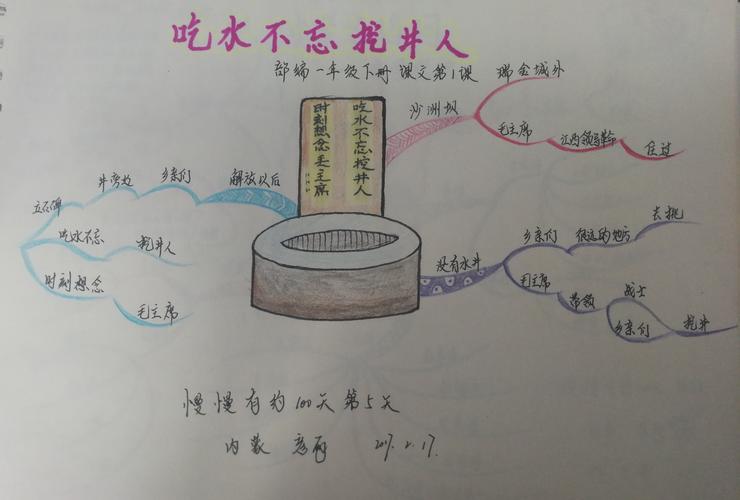 吃水不忘挖井人
部编一年级下册 课文第1课
瑞金城外
沙洲坝
毛主席 江西领导革命 住过
吃水不忘挖井人
时刻想念毛主席
解放以后
乡亲们
井旁边
立石碑
吃水不忘 挖井人
时刻想念 毛主席
没有水井
乡亲们 很远的地方 去挑
毛主席 带领 战士
乡亲们 挖井
慢慢有约100天第5天
内蒙 2017.2.17.